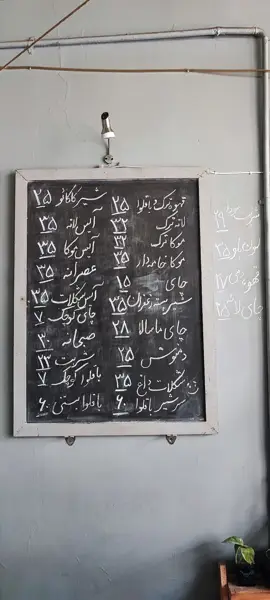 قهوه ترک و باقلوا ۲۵
لاته ترک ۳۲
موکا ترک ۳۲
موکا خانه‌دار ۳۵
چای ۱۵
شیر پسته زعفران ۳۵
چای ماسالا ۲۸
دمنوش ۲۵
شکلات داغ ۳۵
سرشیر باقلوا ۶۰
شیر کاکائو ۲۵
آیس لاته ۳۵
آیس موکا ۳۵
عصرانه ۳۵
آیس شکلات ۳۵
چای کوچک ۷
صبحانه ۳۰
شربت ۲۲
باقلوا کوچک ۷
باقلوا بستنی ۶۰
۲۹
۳۵
قهوه ۲۷
چای لاته